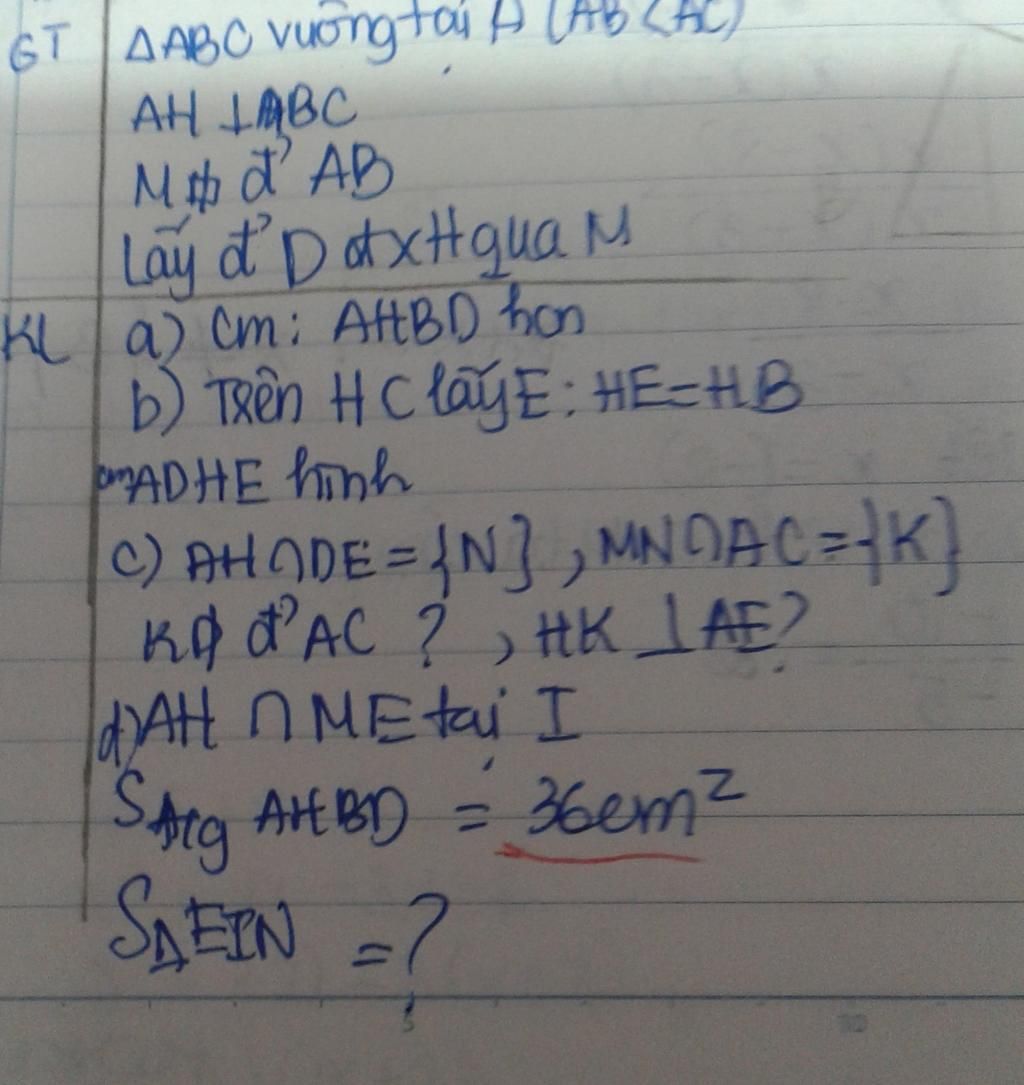 GT ΔABC vuông tại A (AB<AC)
AH ⊥ BC
M đ' AB
Lấy đ' D đx H qua M
KL a) Cm: AHBD hcn
b) Trên HC lấy E: HE=HB
cm ADHE hình
c) AH∩DE={N}, MN∩AC={K}
K đ' AC ?, HK ⊥ AE?
d) AH ∩ ME tại I
S AHBD = 36cm²
SΔEIN =?